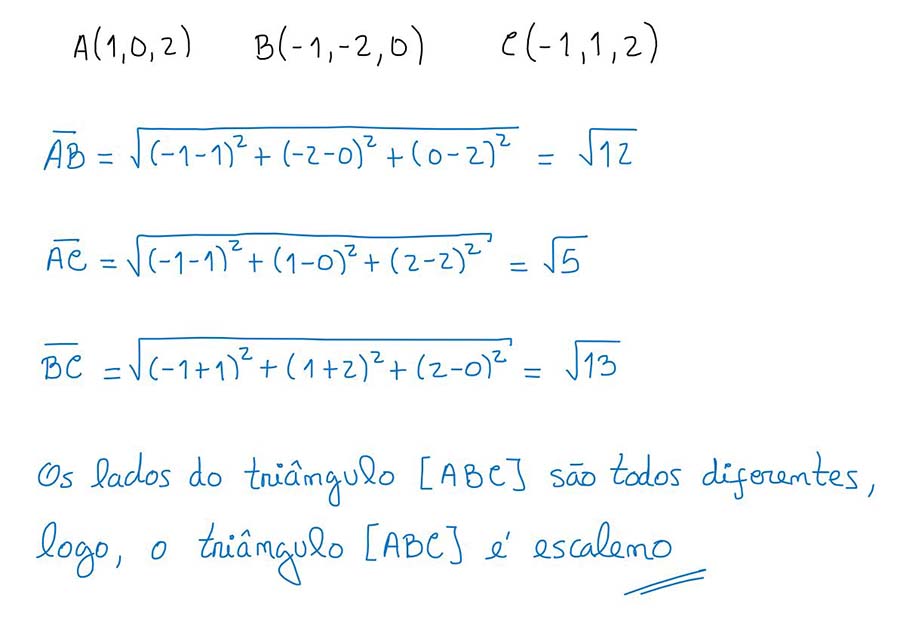 A(1,0,2) B(-1,-2,0) C(-1,1,2)
A̅B̅ = √((-1-1)² + (-2-0)² + (0-2)²) = √12
A̅C̅ = √((-1-1)² + (1-0)² + (2-2)²) = √5
B̅C̅ = √((-1+1)² + (1+2)² + (2-0)²) = √13
Os lados do triângulo [ABC] são todos diferentes,
logo, o triângulo [ABC] é escaleno